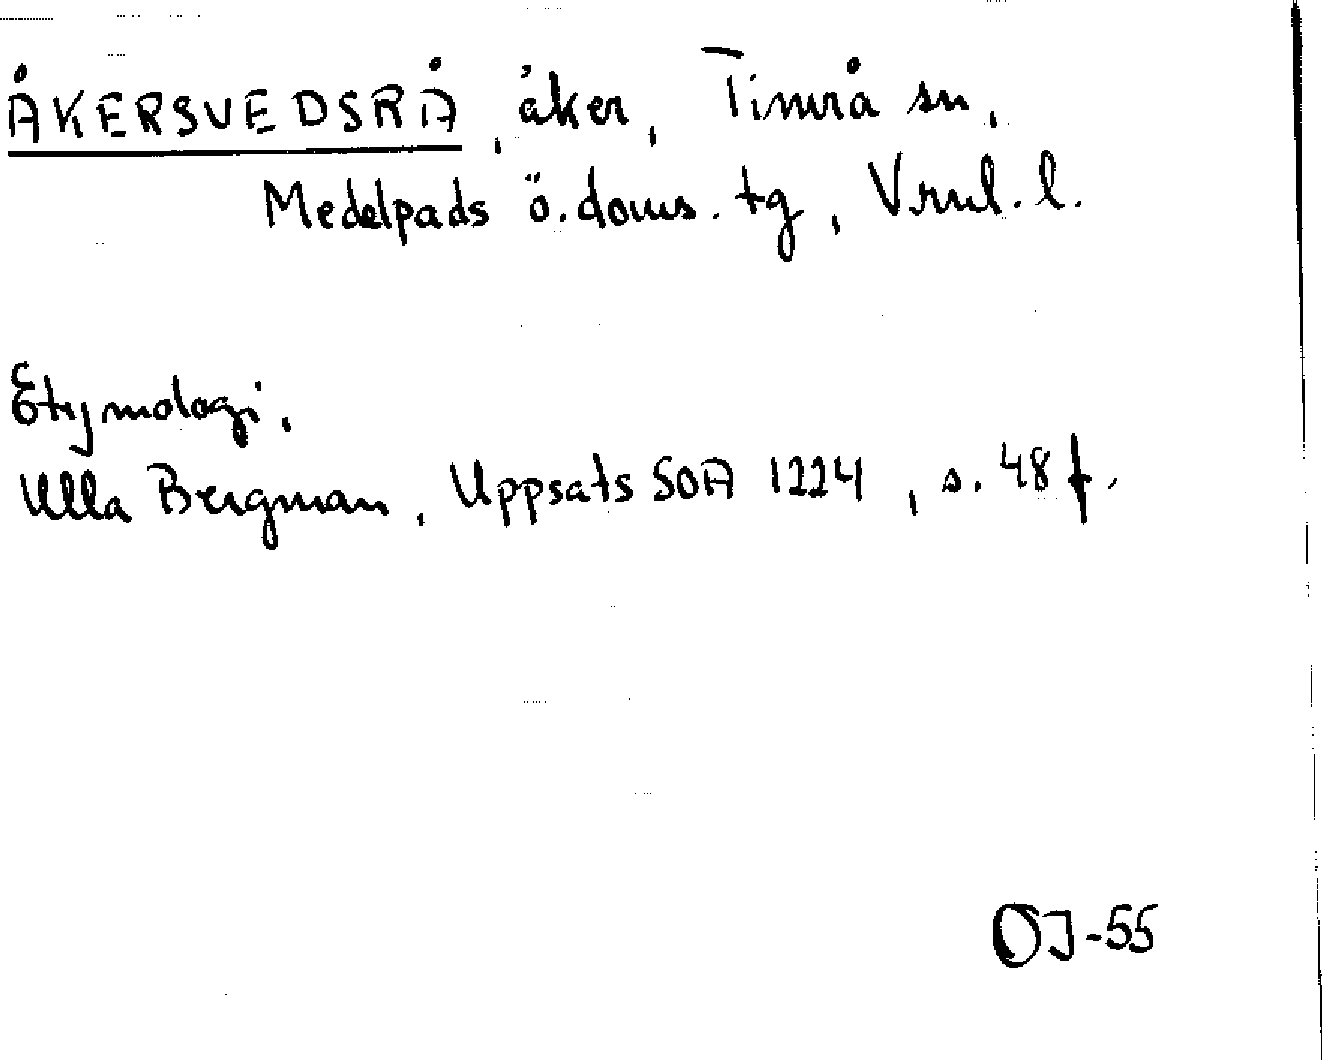 ÅKERSVEDSRÅ, åker, Timrå sn,
Medelpads ö. doms. tg, Vrnl. l.
Etymologi.
Ulla Bergman, Uppsats SOA 1224, s. 48 f.
OJ-55